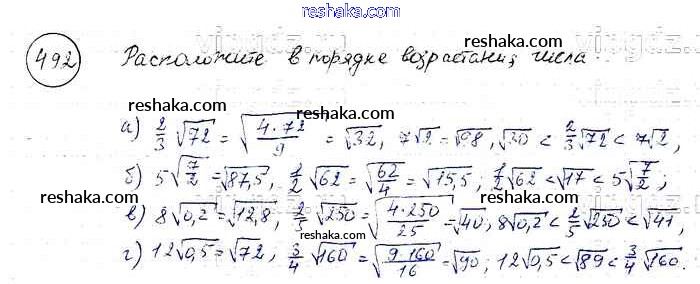 reshaka.com
492 Расположите в порядке возрастания числа
reshaka.com reshaka.com
reshaka.com
а) 2/3 √72 = √(4·72/9) = √32, 7√2 = √98, √30 < 2/3 √72 < 7√2,
б) 5√(7/2) = √87,5, 1/2 √62 = √(62/4) = √15,5; 1/2 √62 < √17 < 5√(7/2);
reshaka.com reshaka.com
в) 8√0,2 = √12,8, 2/5 √250 = √(4·250/25) = √40, 8√0,2 < 2/5 √250 < √41,
reshaka.com
г) 12√0,5 = √72, 3/4 √160 = √(9·160/16) = √90; 12√0,5 < √89 < 3/4 √160.
reshaka.com reshaka.com